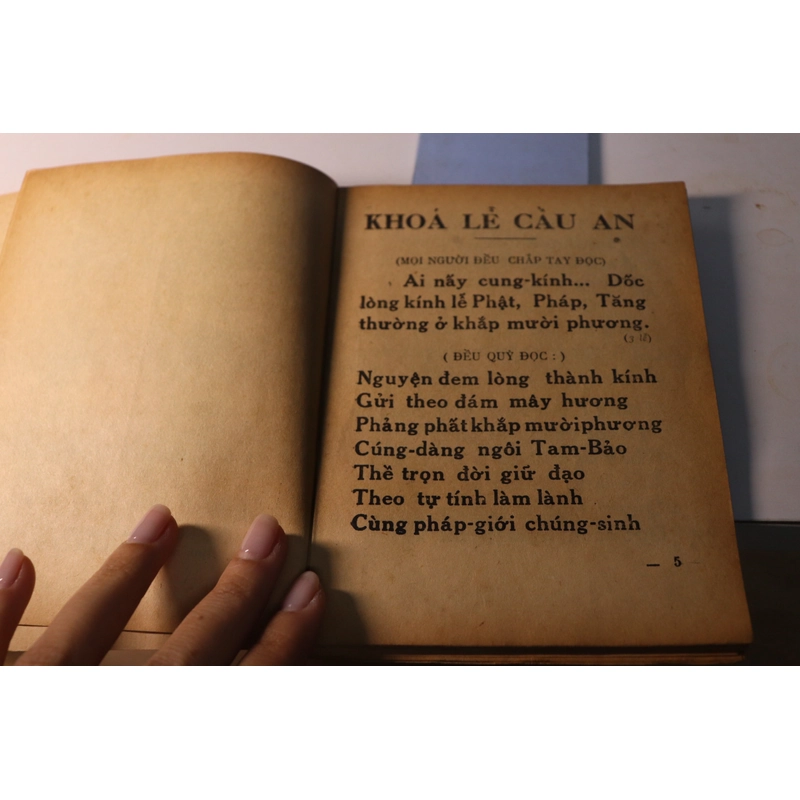 KHOÁ LỄ CẦU AN
(MỌI NGƯỜI ĐỀU CHẮP TAY ĐỌC)
Ai nấy cung-kính... Dốc
lòng kính lễ Phật, Pháp, Tăng
thường ở khắp mười phương.
(3 lễ)
( ĐỀU QUỲ ĐỌC : )
Nguyện đem lòng thành kính
Gửi theo đám mây hương
Phảng phất khắp mười phương
Cúng-dàng ngôi Tam-Bảo
Thề trọn đời giữ đạo
Theo tự tính làm lành
Cùng pháp-giới chúng-sinh
— 5